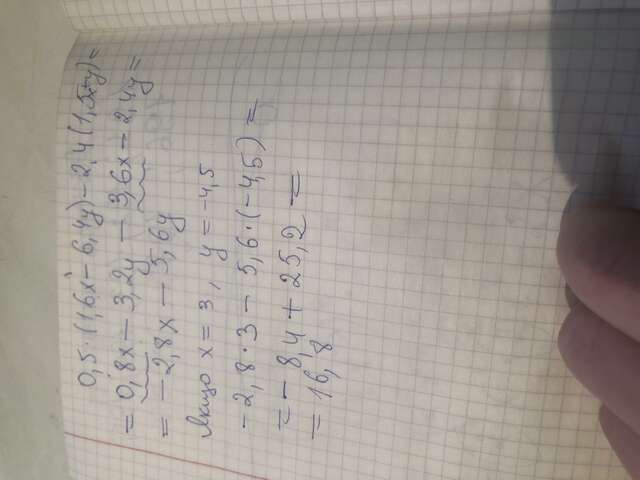 0,5·(1,6x-6,4y)-2,4(1,5x+y)=
=0,8x-3,2y-3,6x-2,4y=
=-2,8x-5,6y
Якщо x=3, y=-4,5
-2,8·3-5,6·(-4,5)=
=-8,4+25,2=
=16,8